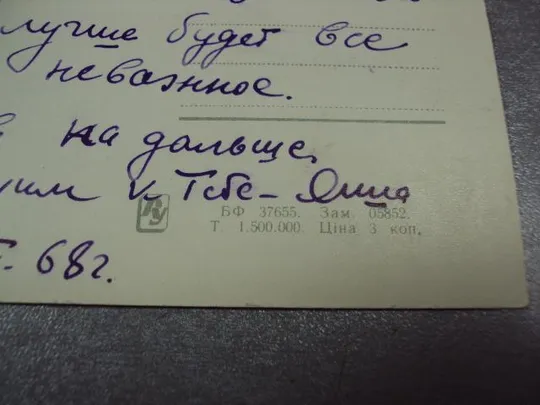 лучше будет все
неважное.
на дальше,
к Тебе - Яша
БФ 37655. Зам. 05852.
Т. 1.500.000. Ціна 3 коп.
68 г.